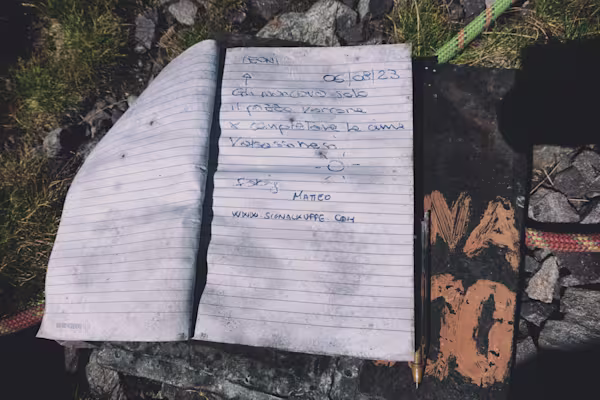 LEONI
↑ 06/08/23
Gli mancava solo
il pizzo Varrone
x completare le cime
Valsassinesi
MATTEO
WWW.SIGNALKUPPE.COM
VA